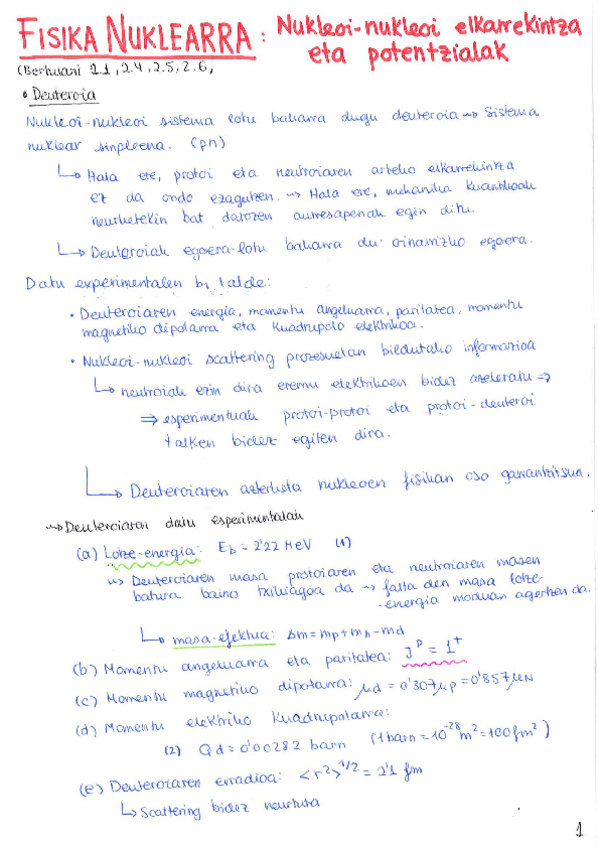 FISIKA NUKLEARRA: Nukleoi-nukleoi elkarrekintza
eta potentzialak
(Berhuari 2.1, 2.4, 2.5, 2.6,
• Deuteroia
Nukleoi-nukleoi sistema lotu bakarra dugu deuteroia ⇝ Sistema
nuklear sinpleena. (pn)
↳ Hala ere, protoi eta neutroiaren arteko elkarrekintza
ez da ondo ezagutzen. ⇝ Hala ere, mekanika kuantikoak
neurketekin bat datozen aurresapenak egin ditu.
↳ Deuteroiak egoera-lotu bakarra du: oinarrizko egoera.
Datu experimentalen bi talde:
• Deuteroiaren energia, momentu angeluarra, paritatea, momentu
magnetiko dipolarra eta kuadrupolo elektrikoa.
• Nukleoi-nukleoi scattering prozesuetan bildutako informazioa
↳ neutroiak ezin dira eremu elektrikoen bidez azeleratu ⇒
⇒ esperimentuak protoi-protoi eta protoi-deuteroi
talken bidez egiten dira.
↳ Deuteroiaren azterketa nukleoen fisikan oso garrantzitsua.
⇝ Deuteroiaren datu esperimentalak
(a) Lotze-energia: Eb = 2'22 MeV (1)
⇝ Deuteroiaren masa protoiaren eta neutroiaren masen
batura baino txikiagoa da ⇝ falta den masa lotze-
-energia moduan agertzen da.
↳ masa-efektua: Δm = mp + mn - md
(b) Momentu angeluarra eta paritatea: J^P = 1^+
(c) Momentu magnetiko dipolarra: μd = 0'307μp = 0'857μN
(d) Momentu elektriko kuadrupolarra:
(2) Qd = 0'00282 barn (1 barn = 10^-28 m^2 = 100 fm^2)
(e) Deuteroiaren erradioa: <r^2>^1/2 = 2'1 fm
↳ Scattering bidez neurtuta
1